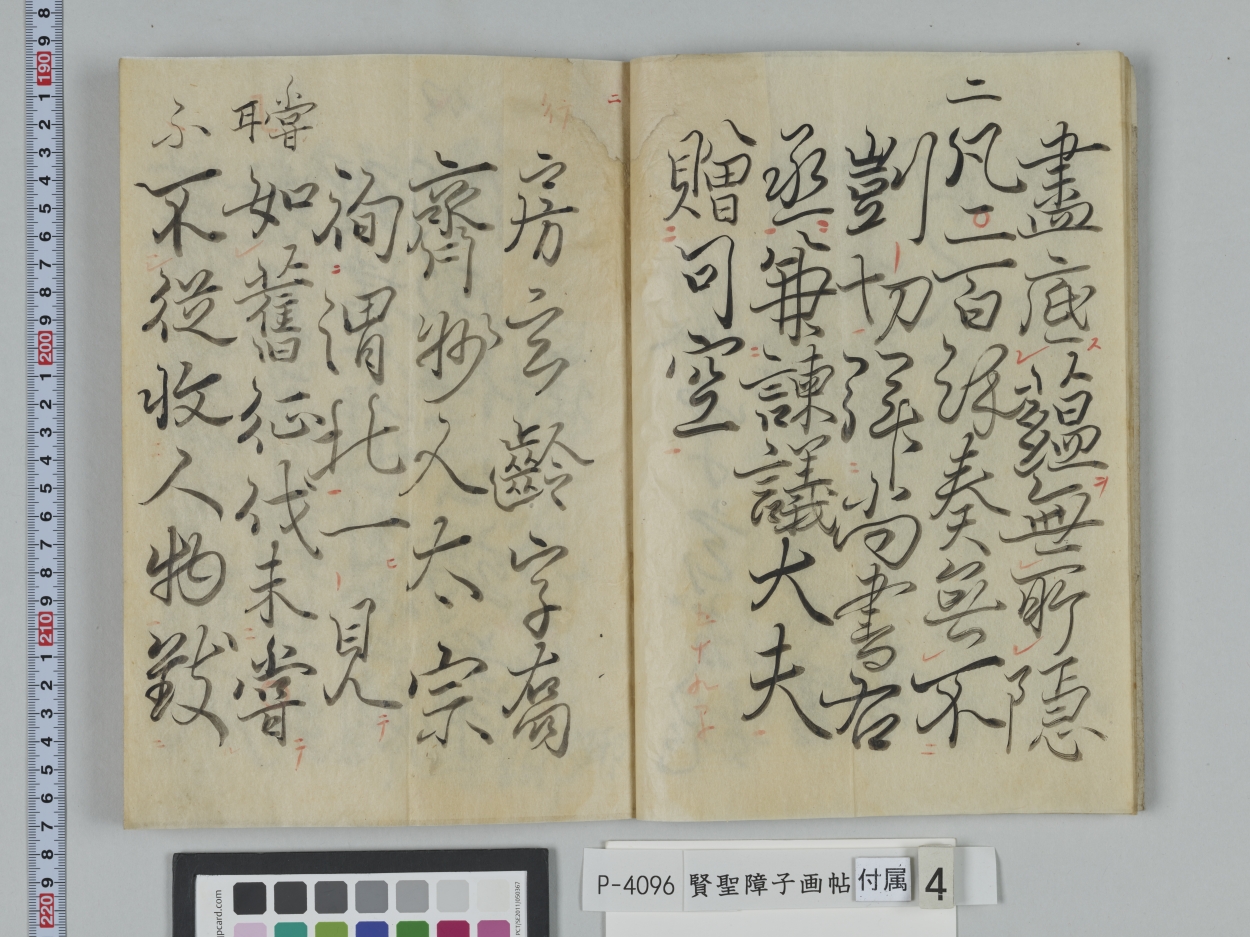 盡底蘊無所隱
二凡二百餘奏無不
剴切拜尚書右
丞兼諫議大夫
贈司空
房玄齡字喬
齊州人太宗
徇渭北一見
如舊征伐未嘗
不不從收人物致
P-4096 賢聖障子画帖 付属 4